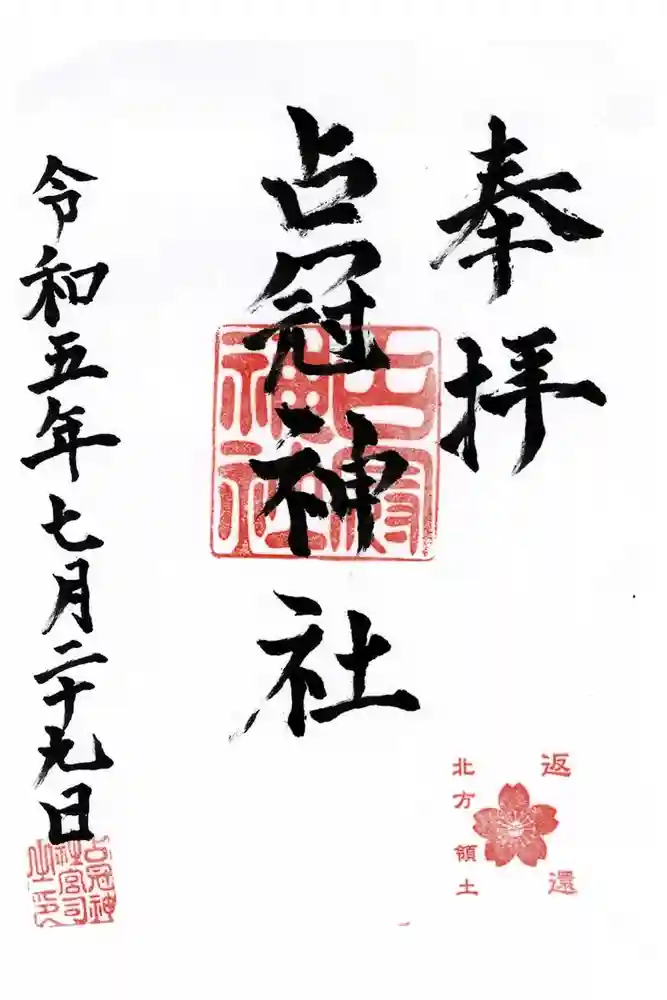 奉拝
占冠神社
占冠神社
令和五年七月二十九日
占冠神
社宮司
之印
返還
北方領土